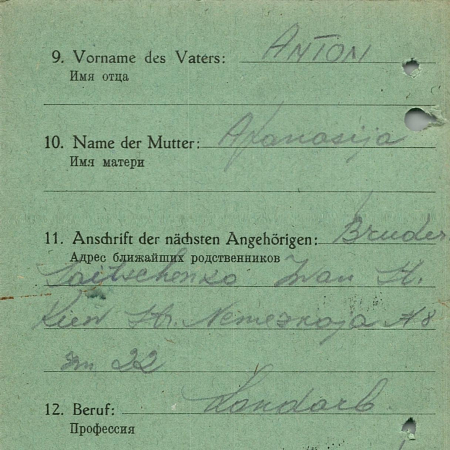 9. Vorname des Vaters: ANTON
Имя отца
10. Name der Mutter: Afanasija
Имя матери
11. Anschrift der nächsten Angehörigen: Bruder
Адрес ближайших родственников
Saitschenko Iwan St.
Kiew Str. Nemezkaja N8
22
12. Beruf: Landarb.
Профессия